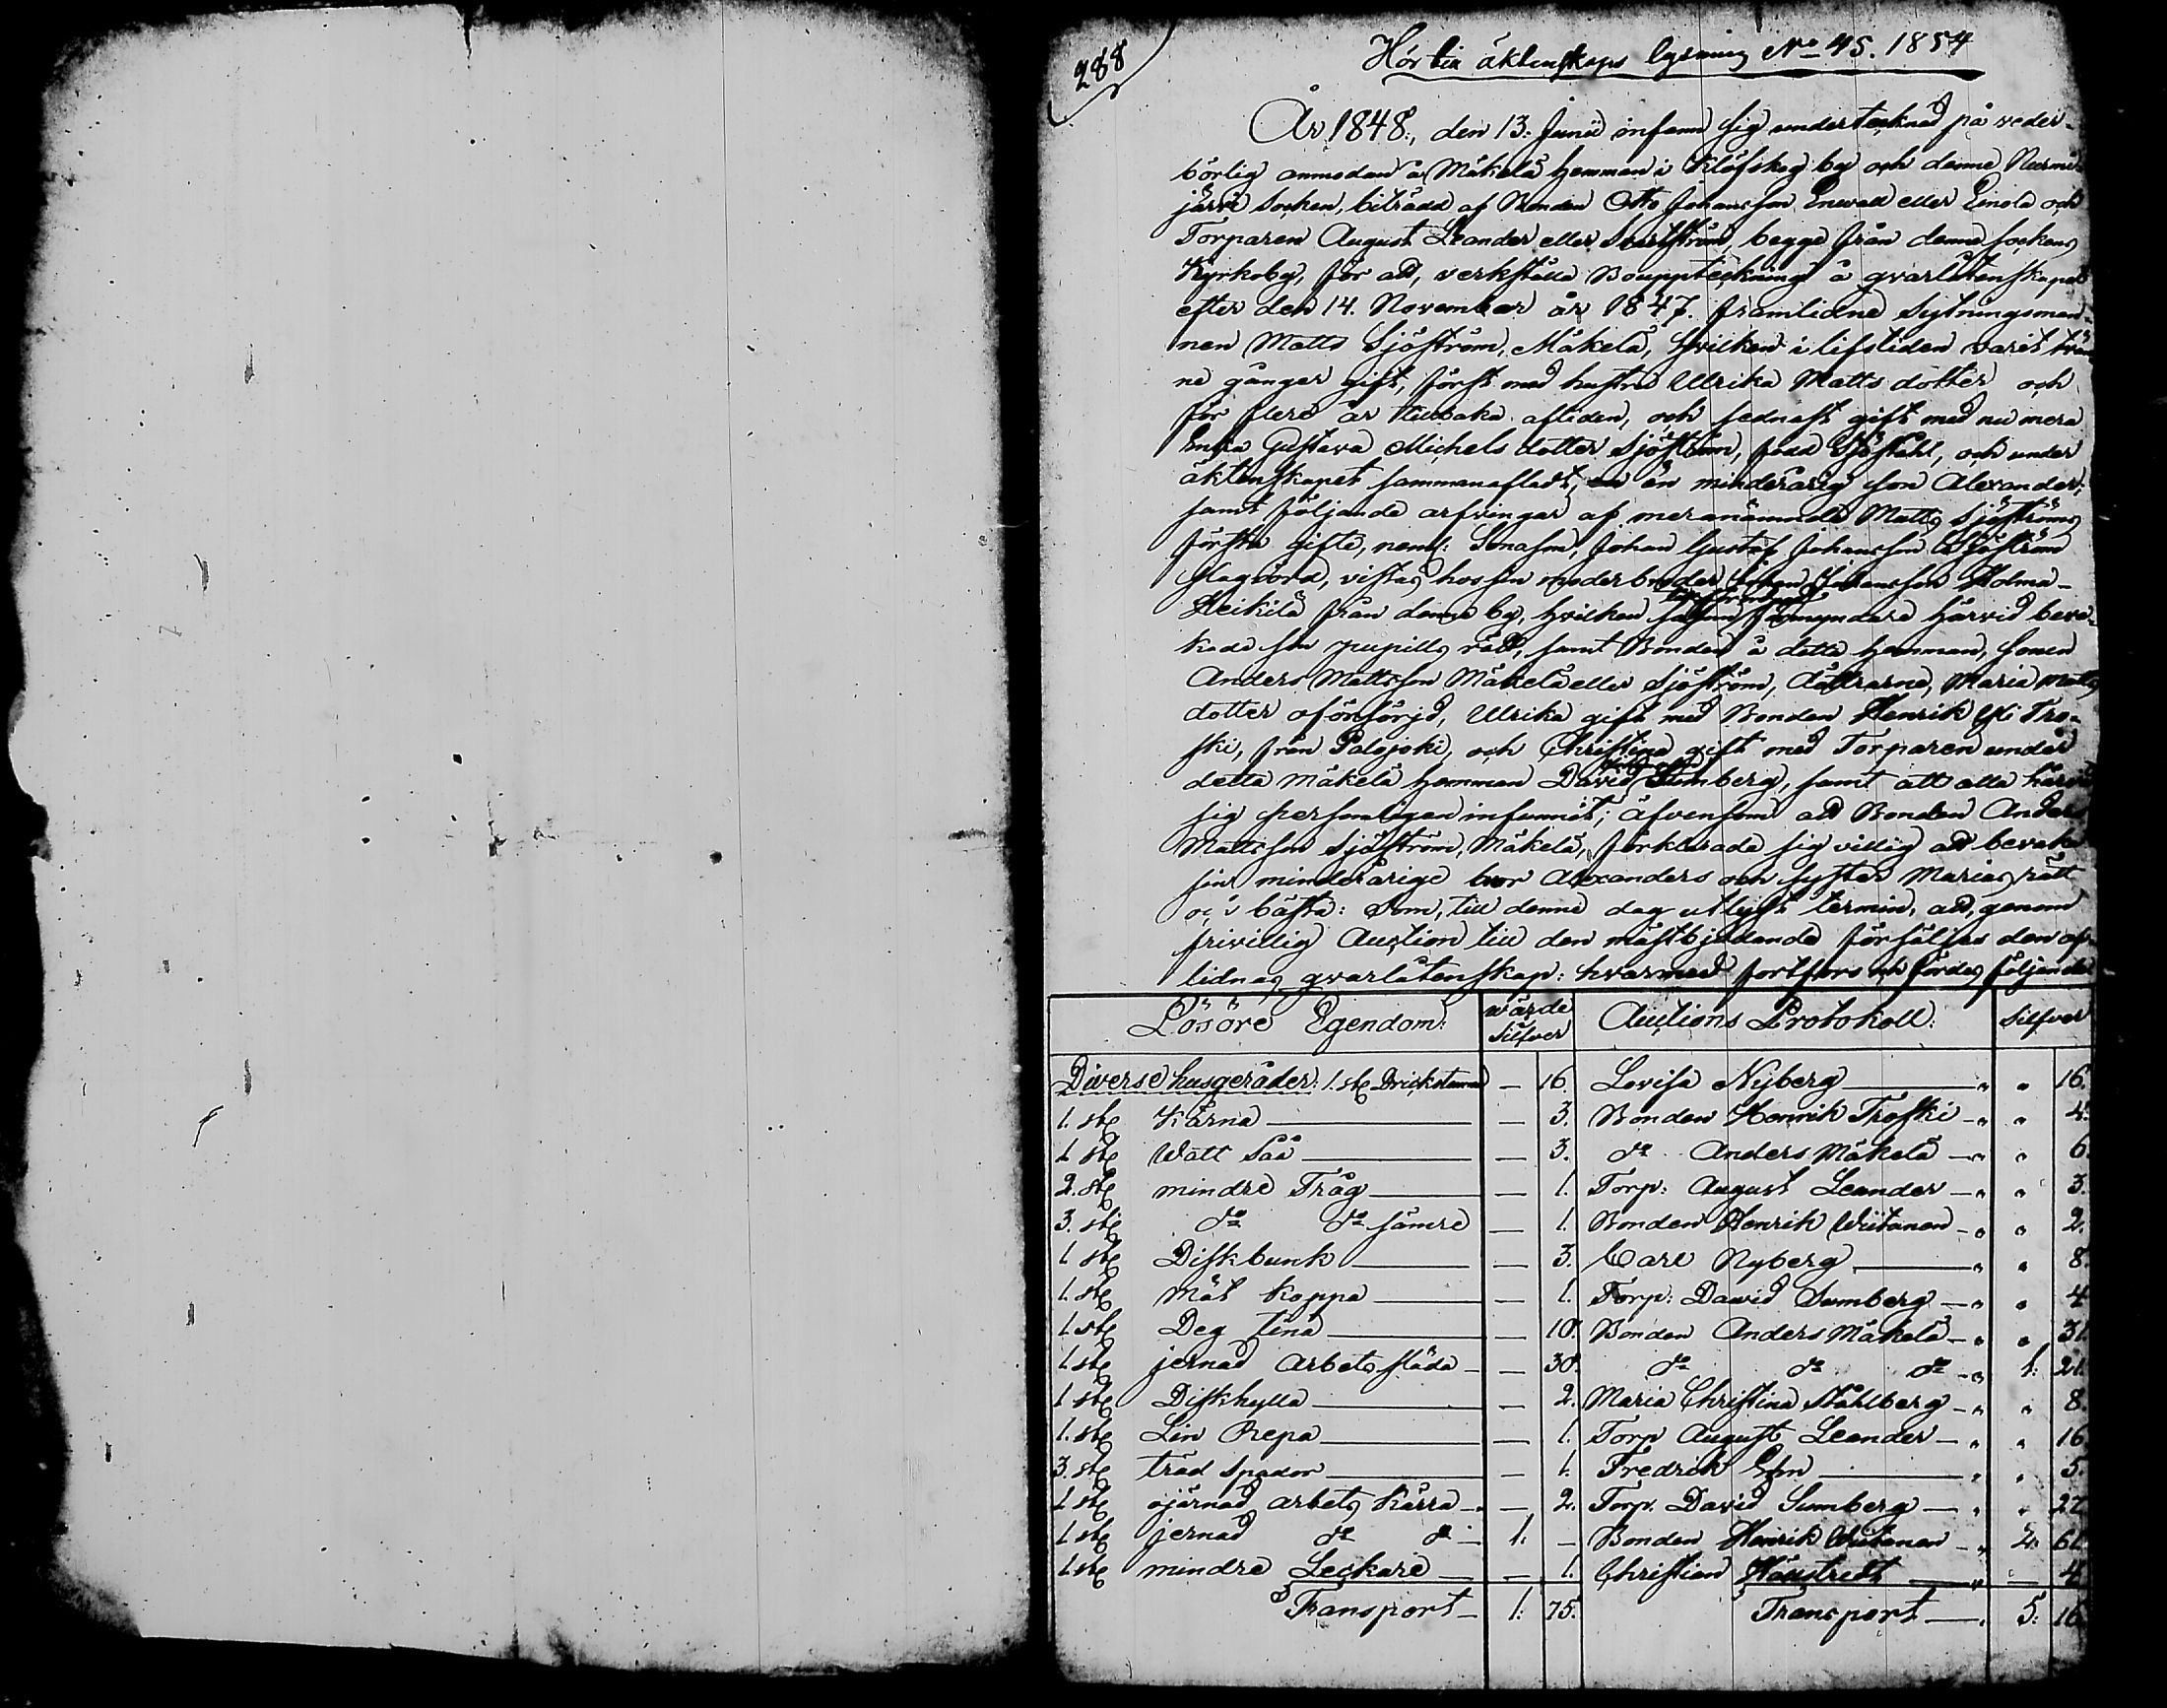 288
Hör till äktenskaps lysning No 45. 1854
År 1848., den 13. Junii infann sig undertecknad på veder-
börlig anmodan å Mäkelä hemman i Klöfskog by och denne Nurmi-
järvi Socken, biträdd af Bonden Otto Johansson Enwall eller Einola och
Torparen August Leander eller begge från denne sockens
Kyrkoby, för att, verkställa Bouppteckning å qvarlåtenskapen
efter den 14. November år 1847. framlidne Sytningsman-
nen Matts Sjöström, Mäkelä, hvilken i lifstiden varit tvän
ne gånger gift, först med hustru Ulrika Matts dotter och
för flere år tillbaka afliden, och sednast gift med nu mera
Enkia Gustava Michels dotter Sjöström, född Sjöståhl, och under
äktenskapet sammanaflat, en minderårig son Alexander;
samt följande arfvingar af meranämnde Matts Sjöströms
första gifte, neml: Sonason, Johan Gustaf Johansson Sjöström
vistas hos sin moderbroder Johan Johansson Holma-
Heikilä från denne by, hvilken såsom förmyndare härvid beva-
kade sin pupills rätt, samt Bonden å detta hemman, sonen
Anders Mattsson Mäkelä eller Sjöström, döttrarne, Maria Matts
dotter oförsörjd, Ulrika gift med Bonden Henrik Yli Tro-
ski, från Palojoki, och Christina gift med Torparen under
detta Mäkelä hemman David Sumberg, samt att alla härvid
sig personligen infunnit; äfvensom att Bonden Anders
Mattsson Sjöström, Mäkelä, förklarade sig villig att bevaka
sin minderårige bror Alexanders och syster Marias rätt
och bästa: Som, till denne dag utlyst termin, att, genom
frivillig Auction till den mästbjudande försäljas den af-
lidnas qvarlåtenskap: hvarmed fortfors och fördes följande
Lösöre Egendom: wärde Silfver Auctions Protokoll: Silfver
Diverse husgeråder: 1. st. Drickstunna — 16. Lovisa Nyberg — " " 16.
1. st. Kärna — — 3. Bonden Henrik Troski — " " 4.
1 st. Watt Såå — — 3. do Anders Mäkelä — " " 6.
2. st. mindre Tråg — — 1. Torp: August Leander — " " 3.
3. st. do do sämre — 1. Bonden Henrik Wiitanen — " " 2.
1 st. Diskbunk — — 3. Carl Nyberg — " " 8.
1. st. Måt Kappa — — 1. Torp: David Sumberg — " " 4
1 st. Deg tina — — 10. Bonden Anders Mäkelä — " " 31.
1 st. jernad Arbets släda — — 30. do do do — " 1: 21.
1 st. Diskhylla — — 2. Maria Christina Ståhlberg — " " 8.
1. st. Lin Repa — — 1. Torp August Leander — " " 16.
3. st. träd Spador — — 1. Fredrik — " " 5.
1 st. ojärnad arbets Kärra — — 2. Torp. David Sumberg — " " 27
1 st. jernad do do — 1. — Bonden Henrik Wiitanen — " 2: 61.
1 st. mindre Leckare — — 1. Christian — 4
Transport — 1: 75. Transport — 5: 16